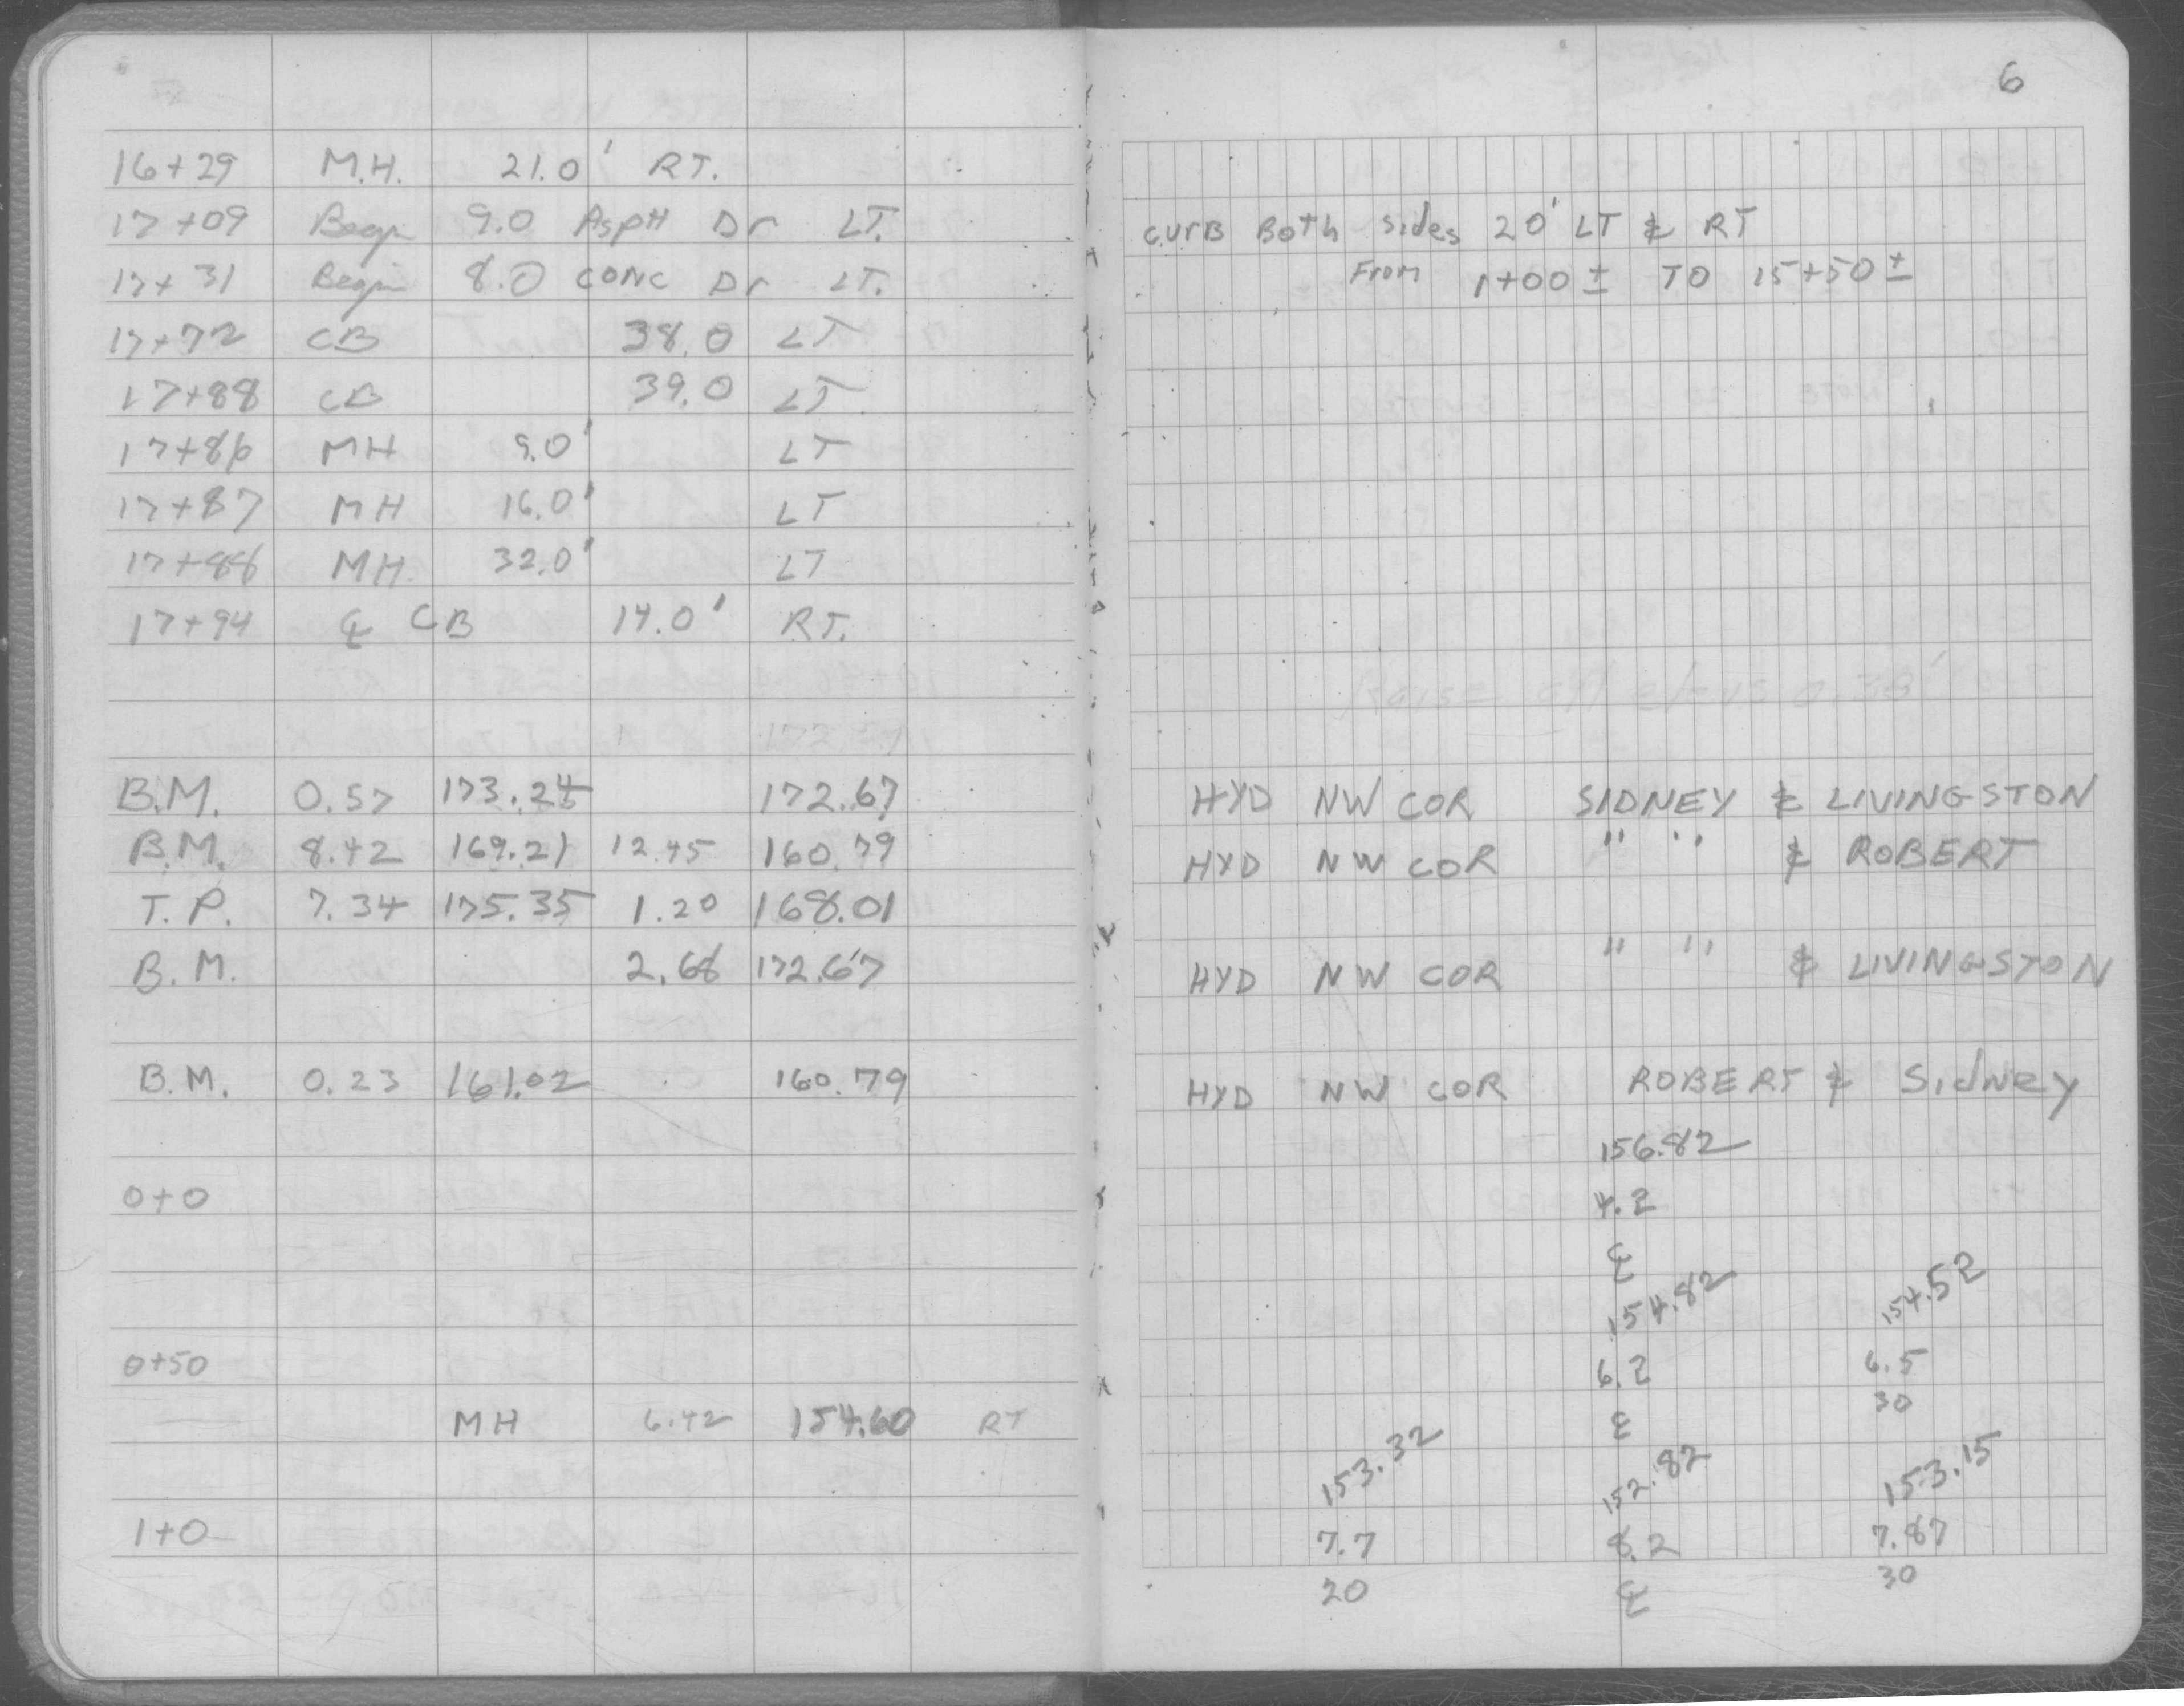 6
16+29 M.H. 21.0' RT.
17+09 Begin 9.0 AspH Dr LT.
17+31 Begin 8.0 CONC Dr LT.
17+72 CB 38.0 LT
17+88 CB 39.0 LT
17+86 MH 9.0' LT
17+87 MH 16.0' LT
17+88 MH. 32.0' LT
17+94 ℄ CB 14.0' RT.
B.M. 0.57 173.24 172.67
B.M. 8.42 169.21 12.45 160.79
T.P. 7.34 175.35 1.20 168.01
B.M. 2.68 172.67
B.M. 0.23 161.02 160.79
0+0
0+50
MH 6.42 154.60 RT
1+0
curB Both sides 20' LT & RT
From 1+00 ± TO 15+50 ±
Raise all elevs 0.38'
HYD NW COR SIDNEY & LIVINGSTON
HYD NW COR " " & ROBERT
HYD NW COR " " & LIVINGSTON
HYD NW COR ROBERT & Sidney
156.82
4.2
℄
154.82 154.52
6.2 6.5
℄ 30
153.32 152.82 153.15
7.7 8.2 7.87
20 ℄ 30